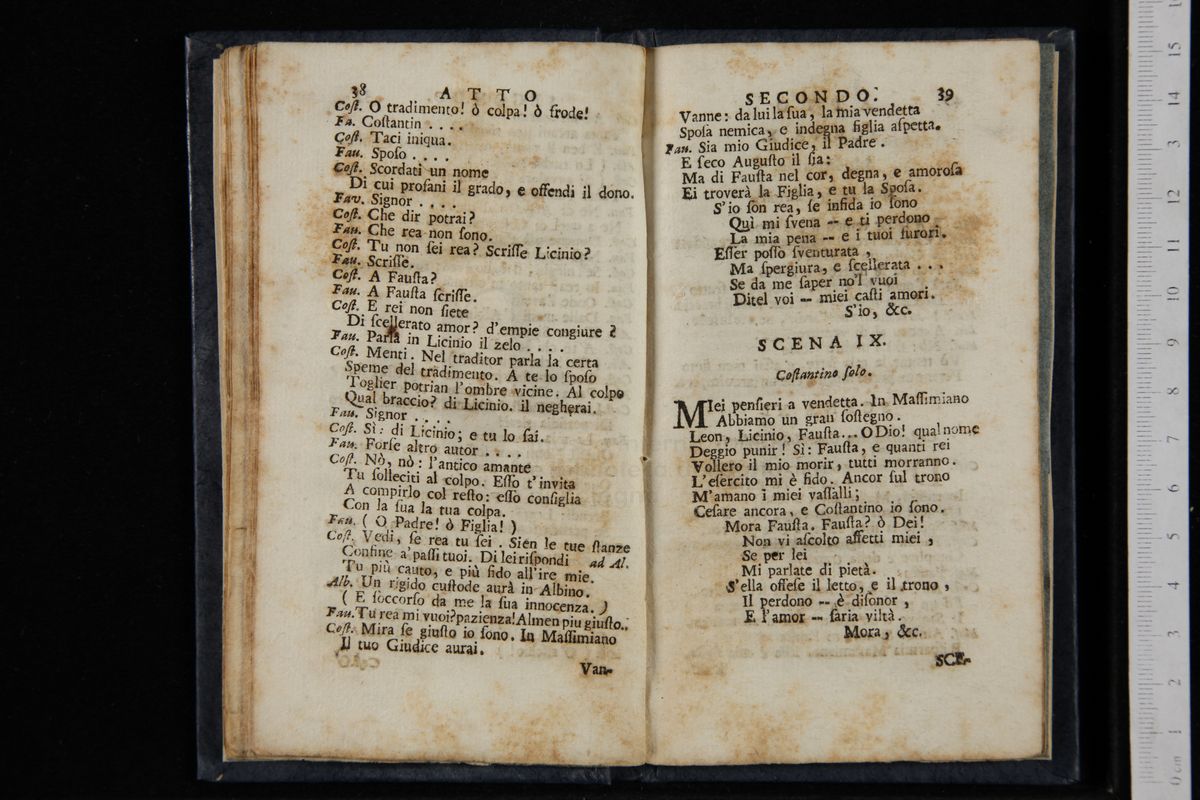 38 ATTO
Coſt. O tradimento! ò colpa! ò frode!
Fa. Coſtantin . . . .
Coſt. Taci iniqua.
Fau. Spoſo . . . .
Coſt. Scordati un nome
Di cui profani il grado, e offendi il dono.
Fav. Signor . . . .
Coſt. Che dir potrai?
Fau. Che rea non ſono.
Coſt. Tu non ſei rea? Scriſſe Licinio?
Fau. Scriſſe.
Coſt. A Fauſta?
Fau. A Fauſta ſcriſſe.
Coſt. E rei non ſiete
Di ſcellerato amor? d'empie congiure?
Fau. Parla in Licinio il zelo . . . .
Coſt. Menti. Nel traditor parla la certa
Speme del tradimento. A te lo ſpoſo
Toglier potrian l'ombre vicine. Al colpo
Qual braccio? di Licinio. il negherai.
Fau. Signor . . . .
Coſt. Sì: di Licinio; e tu lo ſai.
Fau. Forſe altro autor . . . .
Coſt. Nò, nò: l'antico amante
Tu ſolleciti al colpo. Eſſo t'invita
A compirlo col reſto: eſſo conſiglia
Con la ſua la tua colpa.
Fau. ( O Padre! ò Figlia! )
Coſt. Vedi, ſe rea tu ſei. Sien le tue ſtanze
Confine a' paſſi tuoi. Di lei riſpondi ad Al.
Tu più cauto, e più fido all'ire mie.
Alb. Un rigido cuſtode aurà in Albino.
( E ſoccorſo da me la ſua innocenza. )
Fau. Tu rea mi vuoi? pazienza! Almen piu giuſto..
Coſt. Mira ſe giuſto io ſono. In Maſſimiano
Il tuo Giudice aurai.
Van-
SECONDO. 39
Vanne: da lui la ſua, la mia vendetta
Spoſa nemica, e indegna figlia aſpetta.
Fau. Sia mio Giudice, il Padre.
E ſeco Auguſto il ſia:
Ma di Fauſta nel cor, degna, e amoroſa
Ei troverà la Figlia, e tu la Spoſa.
S'io ſon rea, ſe infida io ſono
Quì mi ſvena -- e ti perdono
La mia pena -- e i tuoi furori.
Eſſer poſſo ſventurata,
Ma ſpergiura, e ſcellerata . . .
Se da me ſaper no'l vuoi
Ditel voi -- miei caſti amori.
S'io, &c.
SCENA IX.
Coſtantino ſolo.
MIei penſieri a vendetta. In Maſſimiano
Abbiamo un gran ſoſtegno.
Leon, Licinio, Fauſta... O Dio! qual nome
Deggio punir! Sì: Fauſta, e quanti rei
Vollero il mio morir, tutti morranno.
L'eſercito mi è fido. Ancor ſul trono
M'amano i miei vaſſalli;
Ceſare ancora, e Coſtantino io ſono.
Mora Fauſta. Fauſta? ò Dei!
Non vi aſcolto affetti miei,
Se per lei
Mi parlate di pietà.
S'ella offeſe il letto, e il trono,
Il perdono -- è diſonor,
E l'amor -- ſaria viltà.
Mora, &c.
SCE-